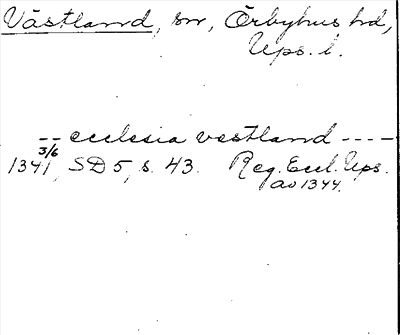 Västland, sn, Örbyhus hd,
Ups. l.
-- ecclesia vestland ----
3/6
1341, SD 5, s. 43. Reg. Eccl. Ups.
av 1344.